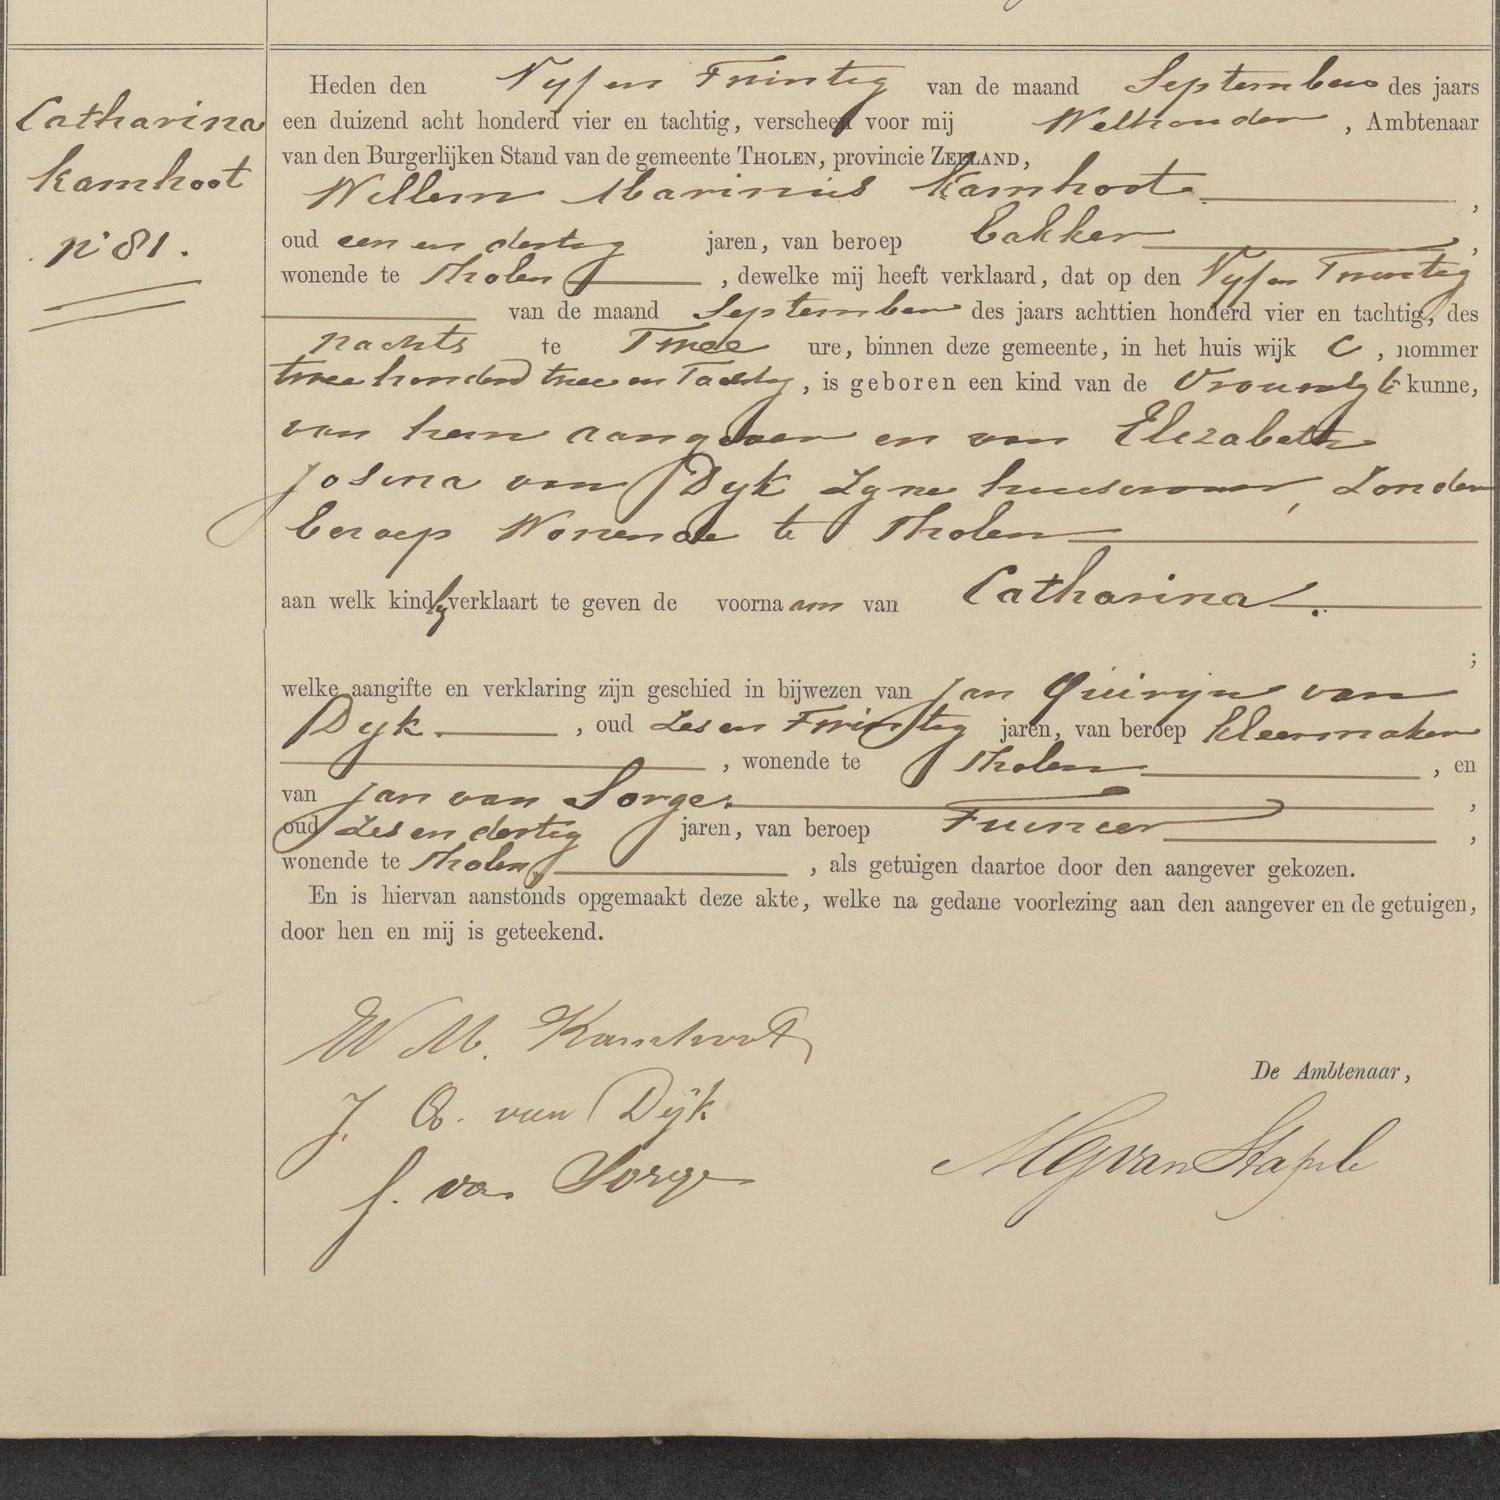 Catharina
Kamhoot
No 81.
Heden den Vyf en Twintig van de maand September des jaars
een duizend acht honderd vier en tachtig, verscheen voor mij Wethouder, Ambtenaar
van den Burgerlijken Stand van de gemeente THOLEN, provincie ZEELAND,
Willem Marinus Kamhoot,
oud een en dertig jaren, van beroep bakker,
wonende te Tholen, dewelke mij heeft verklaard, dat op den Vyf en Twintig
van de maand September des jaars achttien honderd vier en tachtig, des
nachts te Twee ure, binnen deze gemeente, in het huis wijk C, nommer
twee honderd twee en Tachtig, is geboren een kind van de Vrouwelyke kunne,
van hem aangever en van Elizabeth
Josina van Dyk Zyne huisvrouw, Zonder
beroep Wonende te Tholen
aan welk kind hy verklaart te geven de voornaam van Catharina.
;
welke aangifte en verklaring zijn geschied in bijwezen van Jan Quiryn van
Dyk, oud Zes en Twintig jaren, van beroep kleermaker
, wonende te Tholen, en
van Jan van Sorge,
oud Zes en dertig jaren, van beroep Tuinier,
wonende te Tholen, als getuigen daartoe door den aangever gekozen.
En is hiervan aanstonds opgemaakt deze akte, welke na gedane voorlezing aan den aangever en de getuigen,
door hen en mij is geteekend.
W M. Kamhoot
J. Q. van Dijk
J. van Sorge
De Ambtenaar,
van Stapele